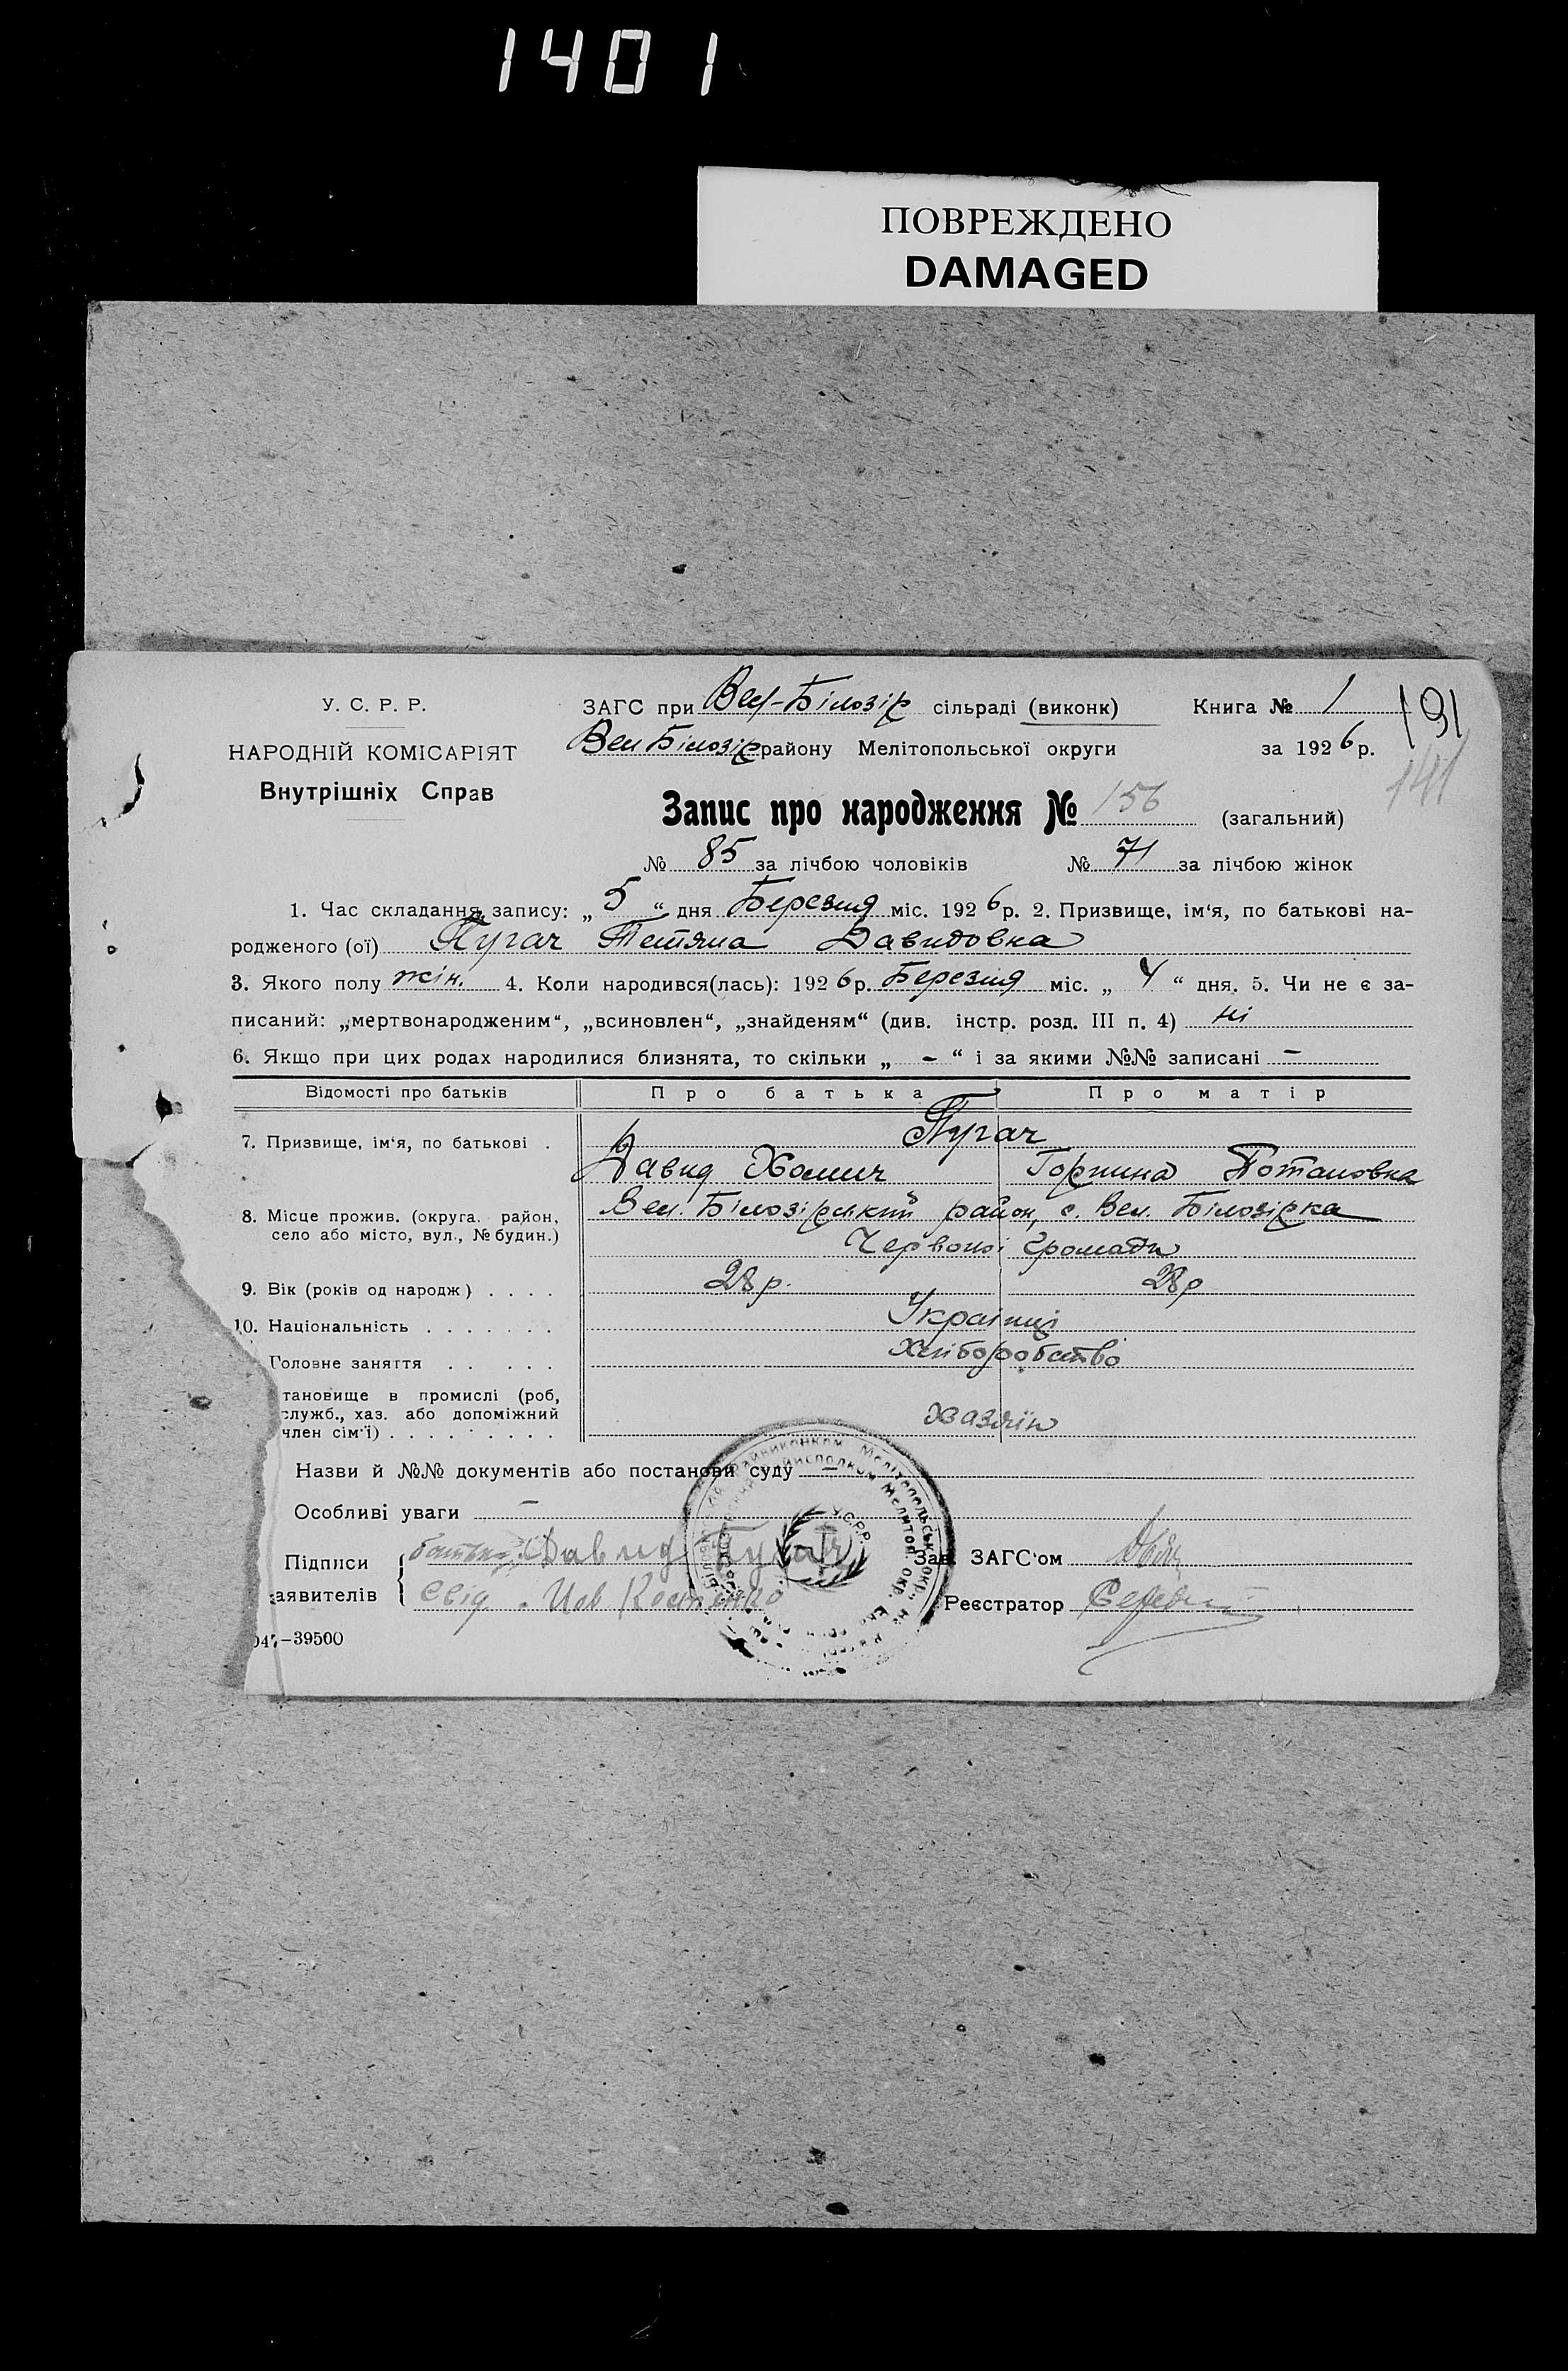 1401
ПОВРЕЖДЕНО
DAMAGED
У. С. Р. Р.
НАРОДНІЙ КОМІСАРІЯТ
Внутрішніх Справ
ЗАГС при Вел-Білозір сільраді (виконк) Книга № 1
191
Вел Білозір району Мелітопольської округи за 1926 р.
141
Запис про народження № 156 (загальний)
№ 85 за лічбою чоловіків № 71 за лічбою жінок
1. Час складання запису: „5“ дня Березня міс. 1926 р. 2. Призвище, ім‘я, по батькові на-
родженого (ої) Пугач Тетяна Давидовна
3. Якого полу жін. 4. Коли народився(лась): 1926 р. Березня міс. „4“ дня. 5. Чи не є за-
писаний: „мертвонародженим“, „всиновлен“, „знайденям“ (див. інстр. розд. III п. 4) ні
6. Якщо при цих родах народилися близнята, то скільки „ - “ і за якими №№ записані -
Відомості про батьків Про батька Про матір
7. Призвище, ім‘я, по батькові . Пугач
Давид Хомич Горпина Потаповна
8. Місце прожив. (округа. район, Вел. Білозірський район, с. Вел. Білозірка
село або місто, вул., № будин.) Червоної Громади
9. Вік (років од народж) . . . . 28 р. 28 р
10. Національність . . . . . . . Українці
Головне заняття . . . . . . Хліборобство
тановище в промислі (роб,
служб., хаз. або допоміжний Хазяїн
член сім‘ї) . . . . . . . . .
Назви й №№ документів або постанови суду -
Особливі уваги -
Підписи батько Давид Пугач Зав. ЗАГС‘ом
аявителів Свід. Иов Костенко Реєстратор
У.С.Р.Р.
047-39500